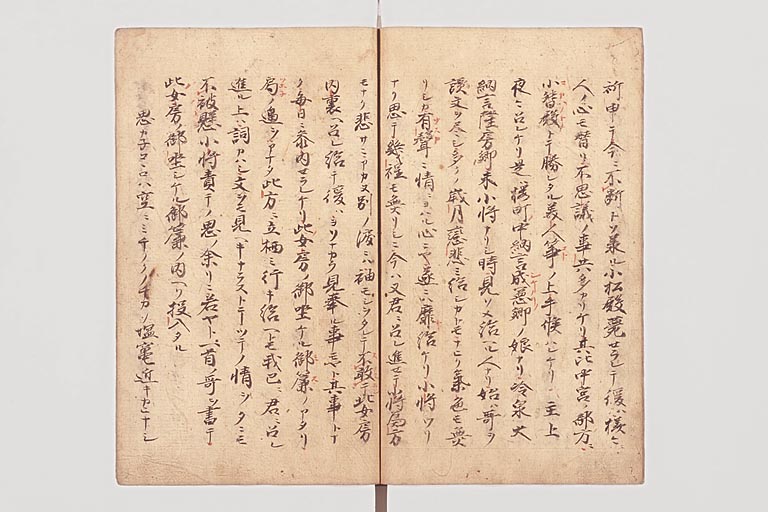 祈申テ今ニ不断トソ承ル小松殿薨セラレテ後ハ様々ニ
人ノ心モ替リ不思議ノ事共多カリケリ其比中宮ノ御方ニ
小督殿トテ勝レタル美人箏ノ上手候ハレケリ主上
夜々ニ召レケリ是ハ桜町中納言成範卿ノ娘ナリ冷泉大
納言隆房卿未小将ナリシ時見ソメ給ヘル人ナリ始ハ哥ヲ
読文ヲ尽シ多クノ歳月恋悲ミ給シカトモナヒク気色モ無
リシカ有繋ニ情ニヨハル心ニヤ遂ニハ靡給ケリ小将
思テ幾程モ無リシニ今ハ又君ニ召レ進セテ将為方
モナク悲サニアカヌ別ノ涙ニハ袖モシヲタレテ不敢此女房
内裏ヘ召レ給テ後ハヨソナカラ見奉ル事モ其事トナ
ク毎日ニ参内セラレケリ此女房ノ御坐ケル御簾ノアタリ
局ノ辺ヲアナタ此方ニ立栖ミ行キ給ヘトモ我已ニ君ニ召レ
進ル上ハ詞カハシ文ヲミ見ヘキナラストテツテノ情ヲタニモ
不被懸小将責テノ思ノ余リニ若ヤトテ一首ノ哥ヲ書テ
此女房ノ御坐シケル御簾ノ内ヘソ投入タル
思カネコヽロハ空ニミチノクノチカノ塩竃近キカヒナシ